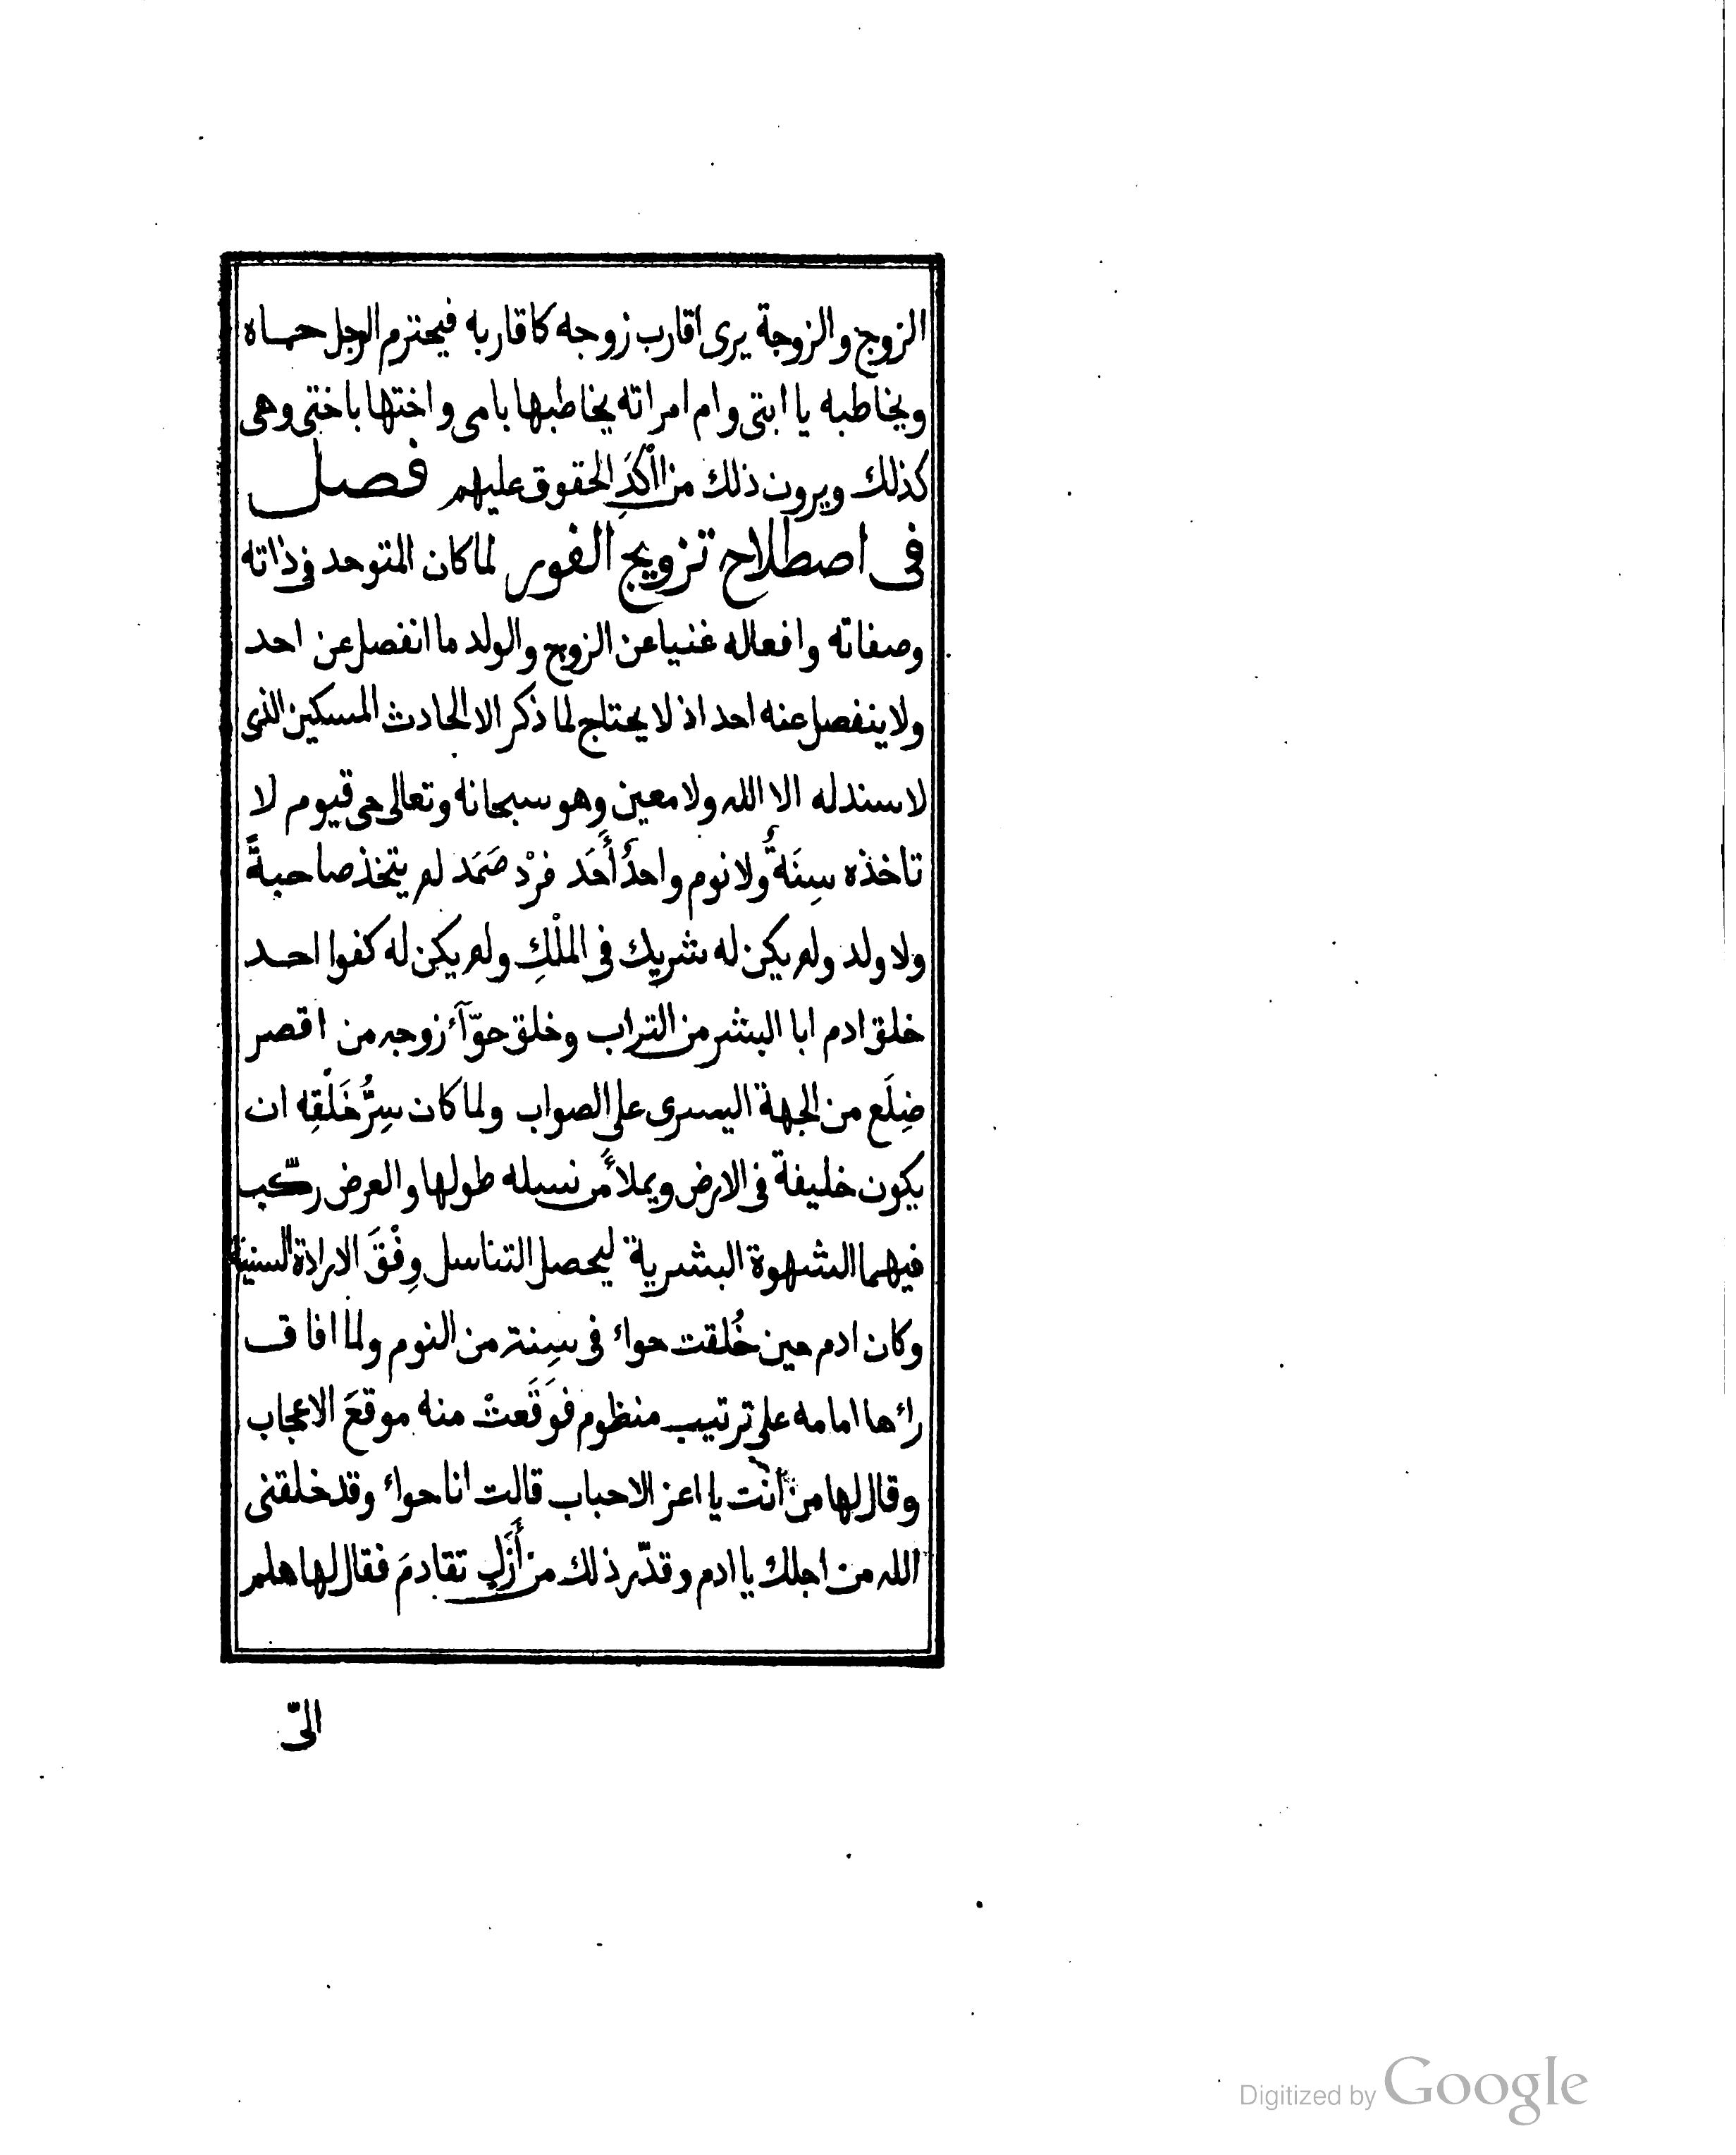 الزوج والزوجة يرى اقارب زوجه كاقاربه فيحترم الرجل حماه
ويخاطبه يا ابتى وام امراته يخاطبها بامى واختها باختى وهى
كذلك ويرون ذلك من اْكَدِ الحقوق عليهم فصل
فى اصطلاح تزويج الفور لما كان المتوحد فى ذاته
وصفاته وافعاله غنيا عن الزوج والولد ما انفصل عن احد
ولا ينفصل عنه احد اذ لا يحتاج لما ذكر الا الحادث المسكين الذى
لا سند له الا الله ولا معين وهو سبحانه وتعالى حى قيوم لا
تاخذه سِنَةٌ ولا نوم واحدٌ أَحَد فرْد صَمَد لم يتخذ صاحبةً
ولا ولد ولم يكن له شريك فى الملْكِ ولم يكن له كفوا احد
خلق ادم ابا البشر من التراب وخلق حوّآء زوجه من اقصر
ضِلَع من الجهة اليسرى على الصواب ولما كان سِرُّ خَلْقِه ان
يكون خليفة فى الارض ويملأ من نسله طولها والعرض ركّب
فيهما الشهوة البشرية ليحصل التناسل وِفْقَ الارادة السنية
وكان ادم حين خُلقت حواء فى سِنة من النوم ولما افاق
راءها امامه على ترتيب منظوم فوَقَعتْ منه موقعَ الاعجاب
وقال لها من أنت يا اعز الاحباب قالت انا حواء وقد خلقنى
الله من اجلك يا ادم وقدّر ذلك من أَزَلٍ تقادمَ فقال لها هلم
الىّ
Digitized by Google